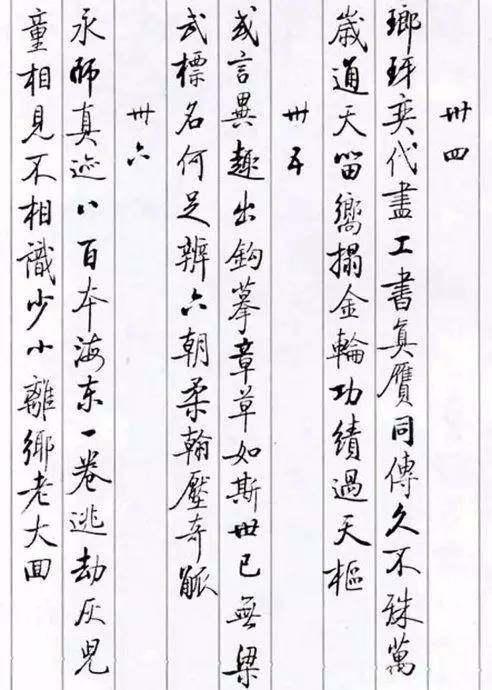 卅四
瑯玡奕代盡工書真贗同傳久不殊萬
歲通天留嚮搨金輪功績過天樞
卅五
或言異趣出鈎摹章草如斯世已無梁
武標名何足辨六朝柔翰壓奇觚
卅六
永師真迹八百本海東一卷逃劫灰兒
童相見不相識少小離鄉老大回